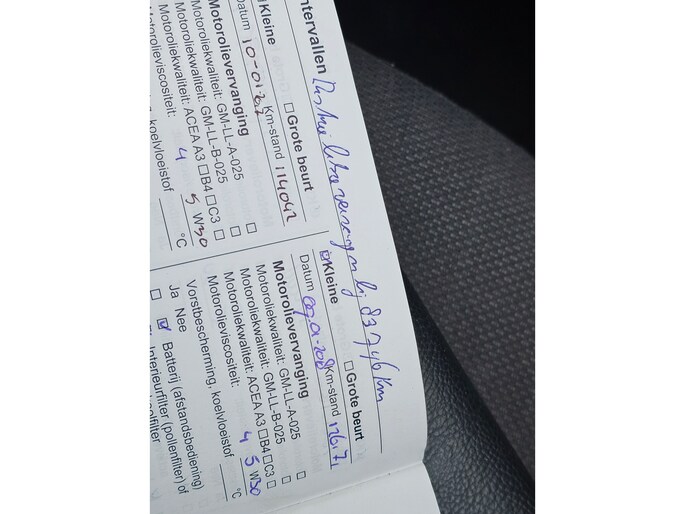 ntervallen
bij 83746 km
Kleine
Grote beurt
Datum 10-01-22 Km-stand 114042
Motorolievervanging
Motoroliekwaliteit: GM-LL-A-025
Motoroliekwaliteit: GM-LL-B-025
Motoroliekwaliteit: ACEA A3 B4 C3
Motorolieviscositeit: 5 W30
koelvloeistof °C
4
Kleine
Grote beurt
Datum Km-stand
Motorolievervanging
Motoroliekwaliteit: GM-LL-A-025
Motoroliekwaliteit: GM-LL-B-025
Motoroliekwaliteit: ACEA A3 B4 C3
Motorolieviscositeit: 5 W30
Vorstbescherming, koelvloeistof 4 °C
Ja Nee
Batterij (afstandsbediening)
Interieurfilter (pollenfilter) of